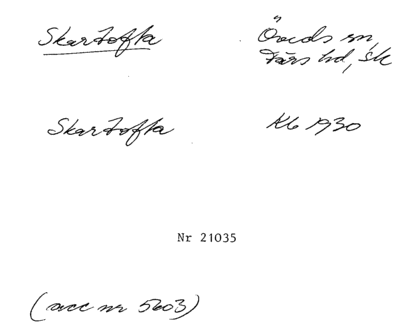 Skartofta
Öveds sn,
Färs hd, Sk
Skartofta
Kb 1930
Nr 21035
(acc nr 5603)